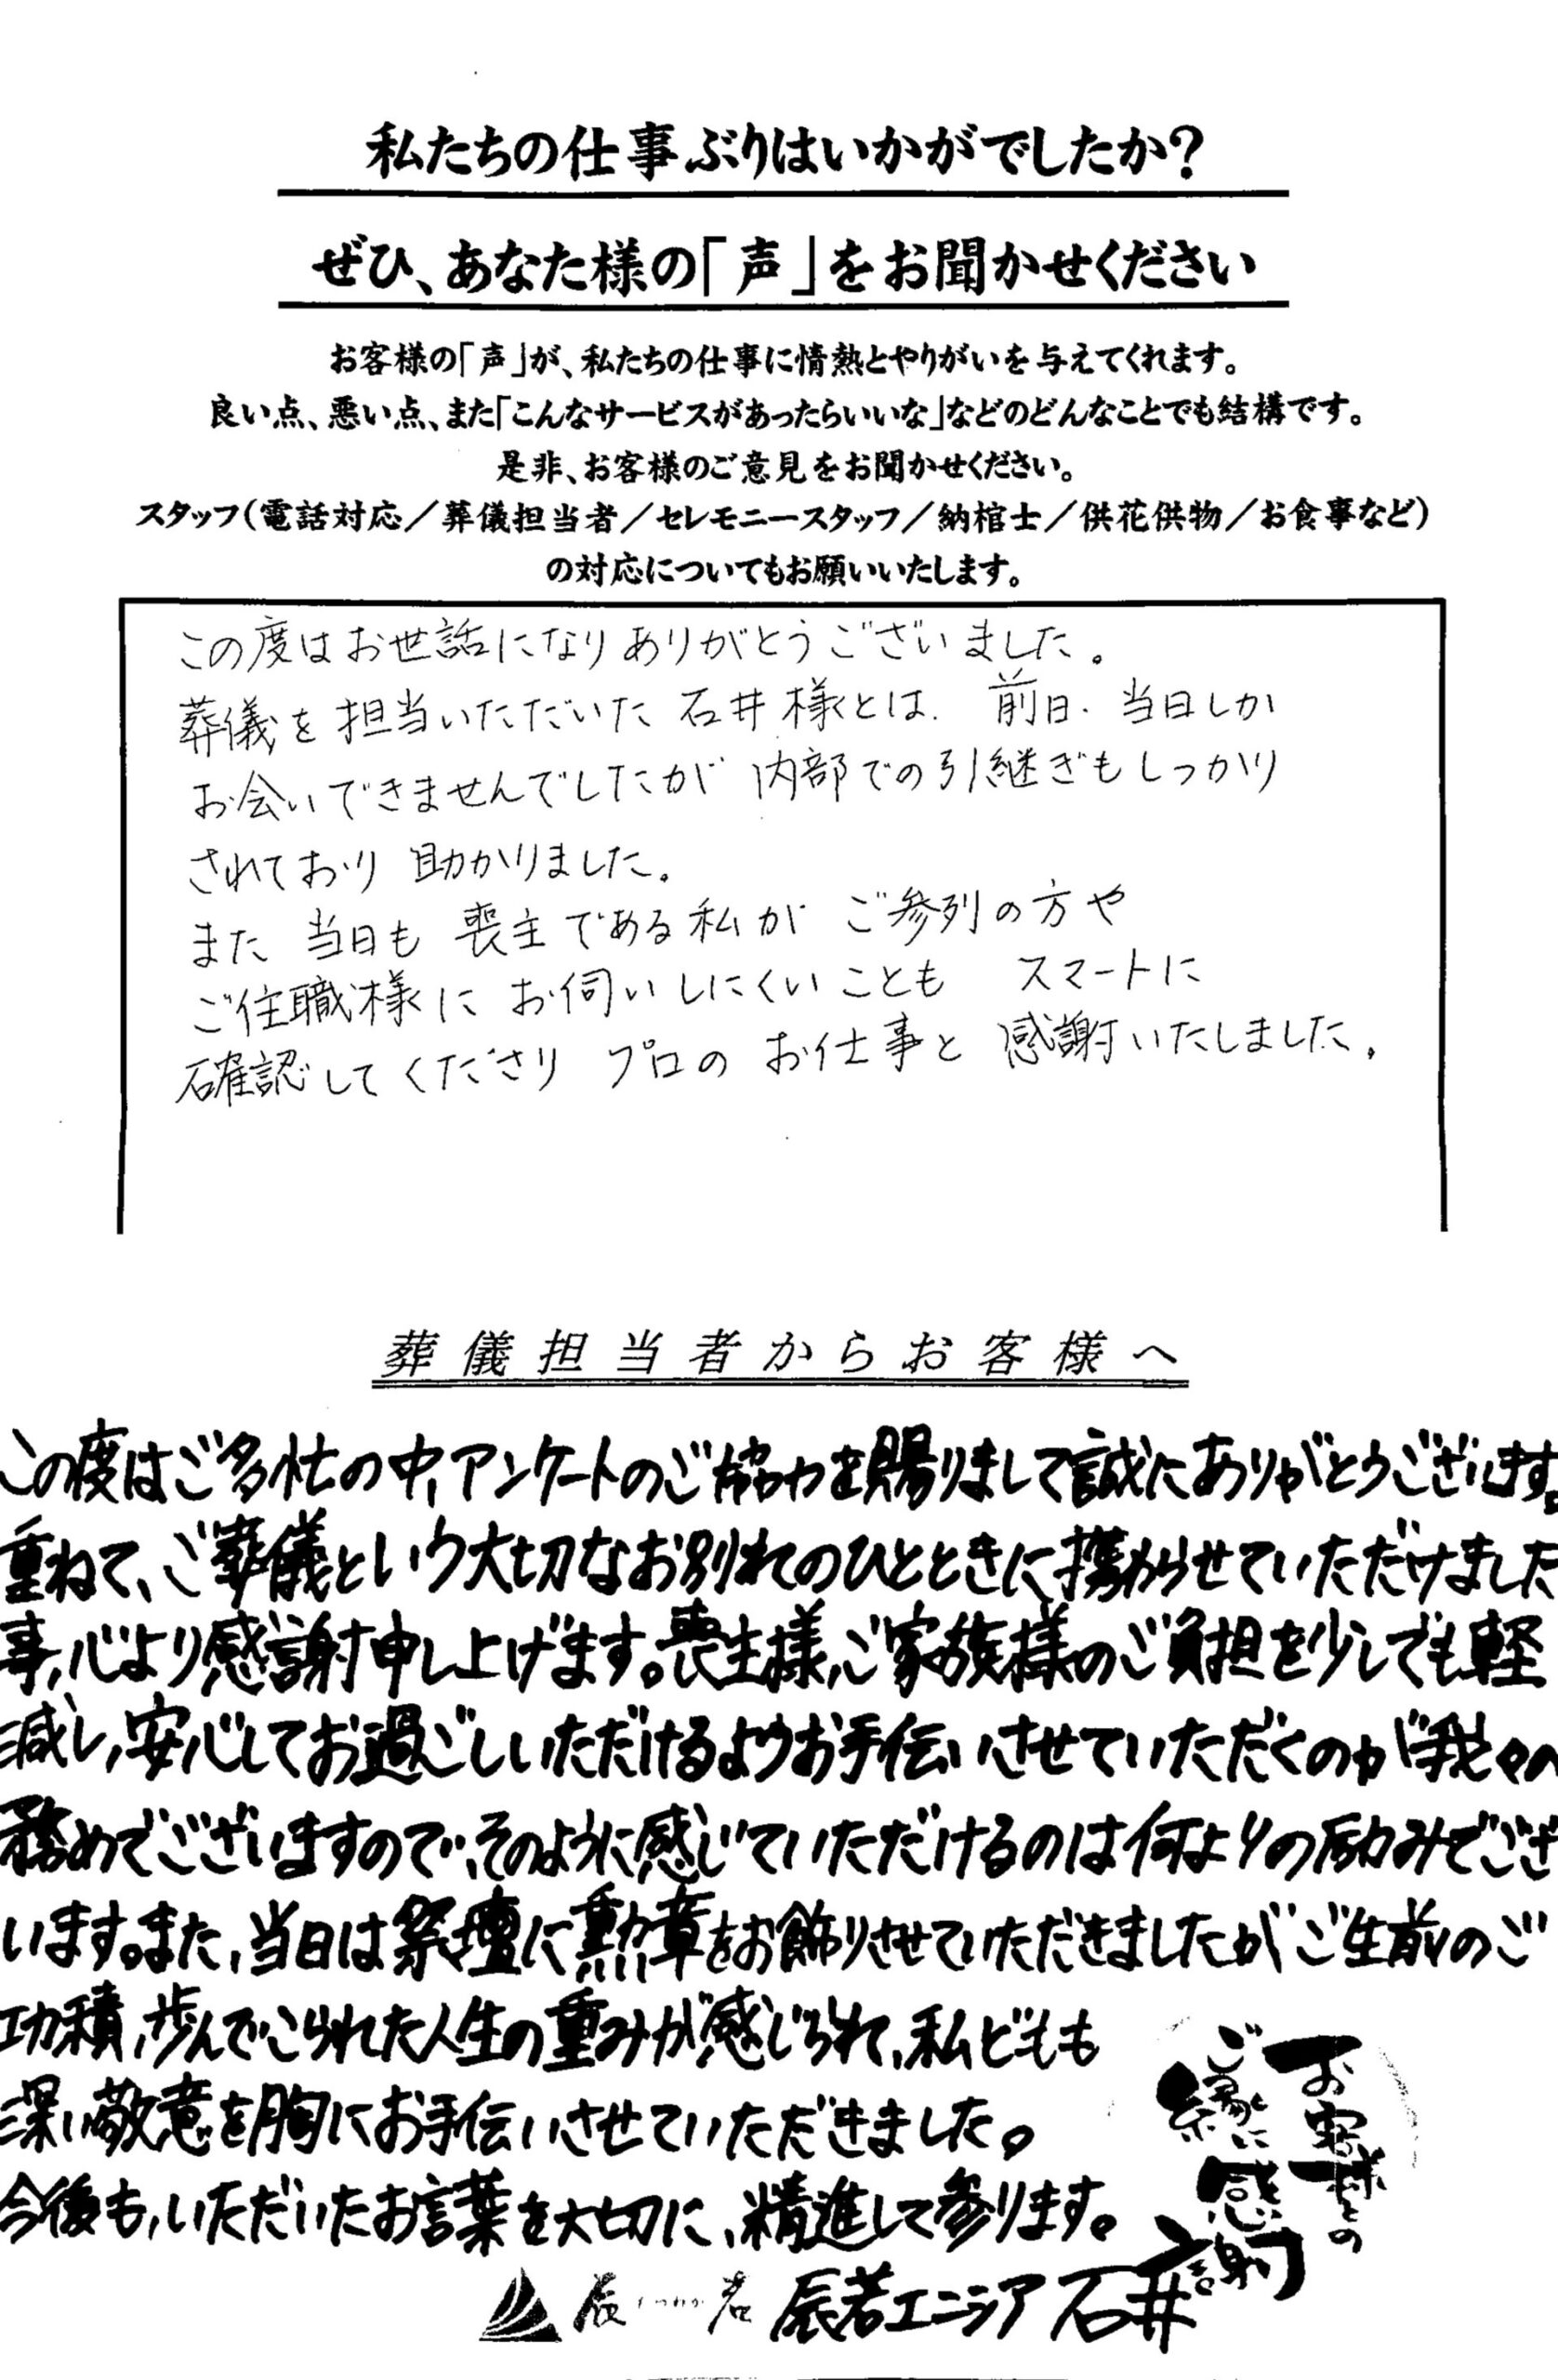 私たちの仕事ぶりはいかがでしたか?
ぜひ、あなた様の「声」をお聞かせください
お客様の「声」が、私たちの仕事に情熱とやりがいを与えてくれます。
良い点、悪い点、また「こんなサービスがあったらいいな」などのどんなことでも結構です。
是非、お客様のご意見をお聞かせください。
スタッフ(電話対応/葬儀担当者/セレモニースタッフ/納棺士/供花供物/お食事など)
の対応についてもお願いいたします。
この度はお世話になりありがとうございました。
葬儀を担当いただいた石井様とは、前日、当日しか
お会いできませんでしたが 内部での引継ぎもしっかり
されており 助かりました。
また 当日も 喪主である私が ご参列の方や
ご住職様に お伺いしにくいことも スマートに
確認してくださり プロの お仕事と 感謝いたしました。
葬儀担当者からお客様へ
この度はご多忙の中、アンケートのご協力を賜りまして誠にありがとうございます。
重ねて、ご葬儀という大切なお別れのひとときに携わらせていただけました
事、心より感謝申し上げます。喪主様、ご家族様のご負担を少しでも軽
減し、安心してお過ごしいただけるようお手伝いさせていただくのが我々の
務めでございますので、そのように感じていただけるのは何よりの励みでござ
います。また、当日は祭壇に勲章をお飾りさせていただきましたが ご生前のご
功積、歩んでこられた人生の重みが感じられて、私どもも
深い敬意を胸にお手伝いさせていただきました。
今後も、いただいたお言葉を大切に、精進して参ります。
お客様との
ご縁に
感謝
辰 若 辰若エニシア 石井